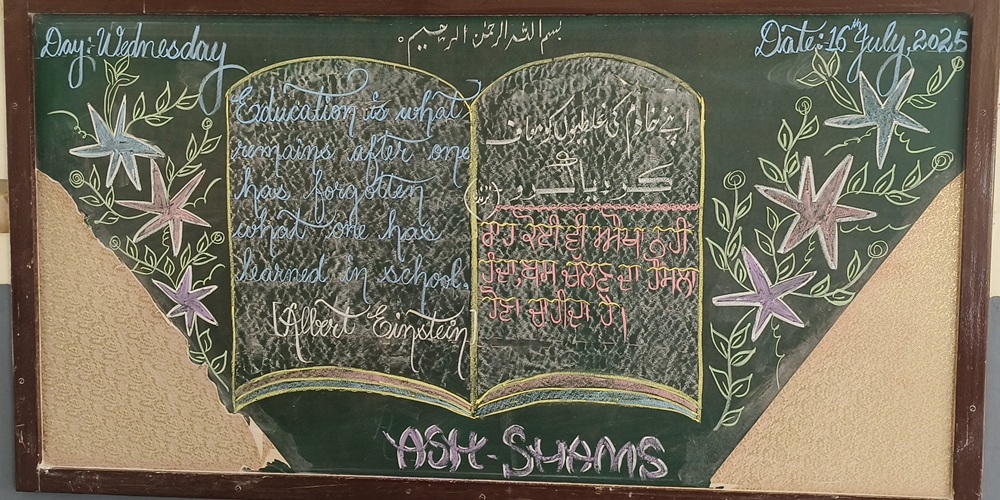 Day: Wednesday
بسم اللہ الرحمٰن الرحیم
Date: 16th July, 2025
Education is what
remains after one
has forgotten
what one has
learned in school.
[Albert Einstein]
اپنے خادم کی غلطیوں کو معاف
کر دیا کرو
ਰਾਹ ਕੋਈ ਵੀ ਔਖਾ ਨਹੀ
ਹੁੰਦਾ, ਬਸ ਚੱਲਣ ਦਾ ਹੌਸਲਾ
ਹੋਣਾ ਚਾਹੀਦਾ ਹੈ।
ASH-SHAMS